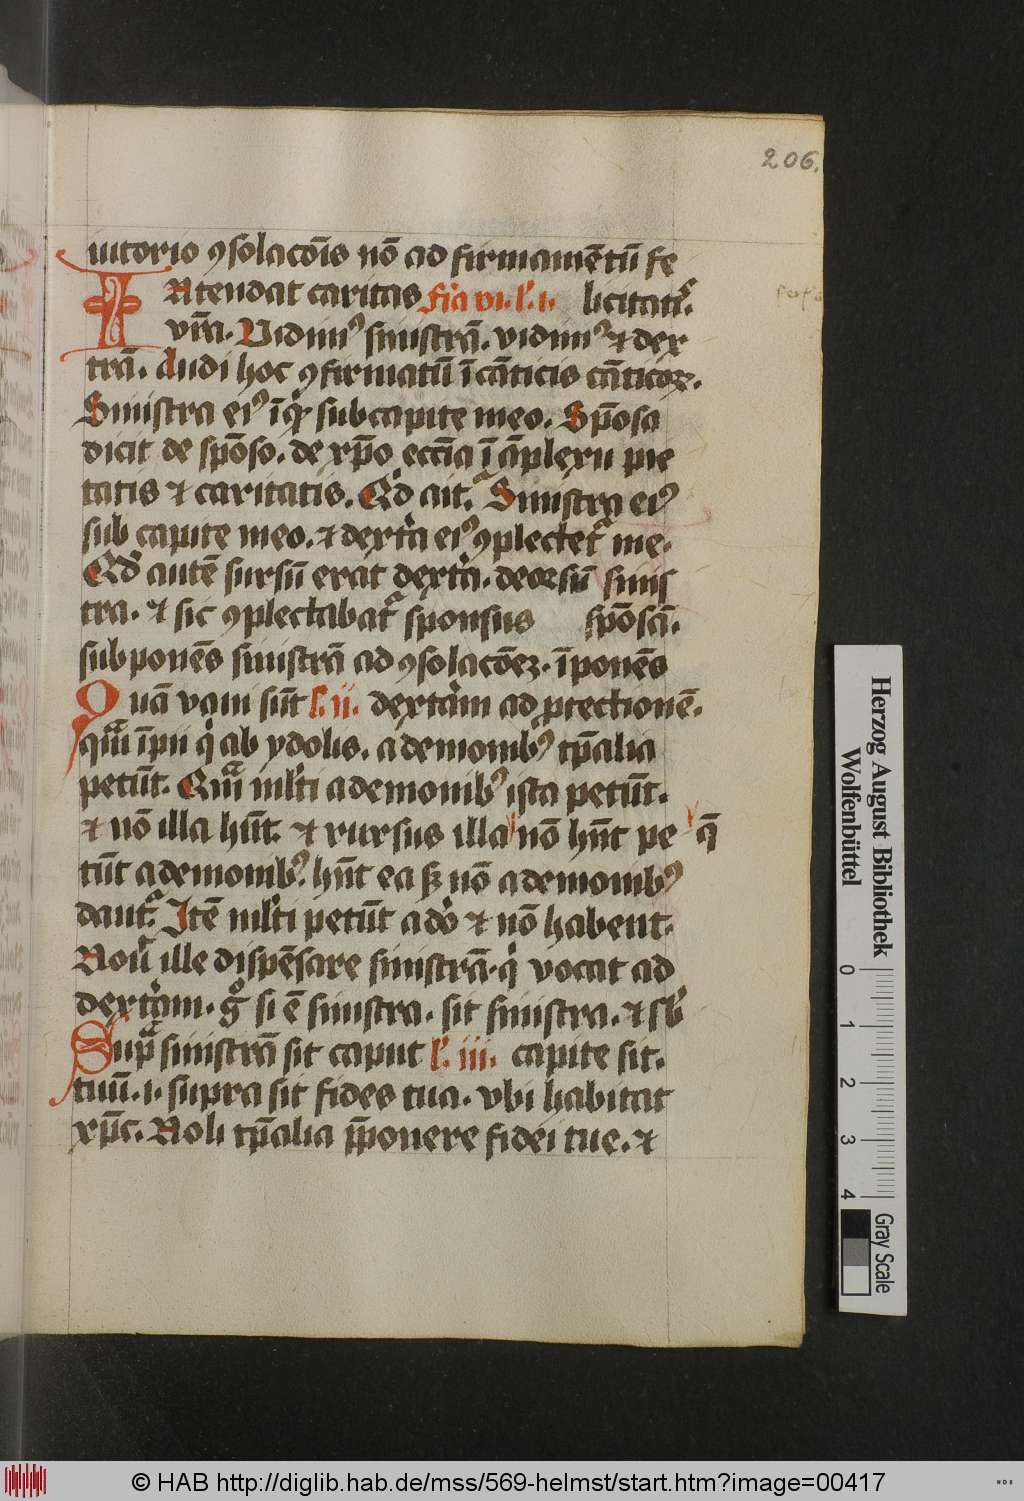 206.
iutorio ꝯsolacōis nō ad firmamētū fe
INtendat caritas fi'a vi. l'. i. licitat'.
vr̄a. Vidimꝰ sinistrā. vidimꝰ ⁊ dex
trā. Audi hoc ꝯfirmatū ī cāticis cāticoꝝ.
Sinistra eiꝰ īqͥt sub capite meo. Spōsa
dicit de spōso. de xp̄o eccīa ī āplexu pie
tatis ⁊ caritatis. Qd̓ ait. Sinistra eiꝰ
sub capite meo. ⁊ dextͥa eiꝰ ꝯplectet᷑ me.
Qd̓ autē sursū erat dextͥa. deorsū sinis
tra. ⁊ sic ꝯplectabat᷑ sponsus spōsā.
subponēs sinistrā ad ꝯsolacōeꝫ. īponēs
Quā vani sūt l'. ii. dextͣam ad ꝓtectionē.
qͣm īpii qͥ ab ydolis. a demonibꝰ tp̄alia
petūt. Qͣm ml'ti a demonibꝰ ista petūt.
⁊ nō illa hn̄t. ⁊ rursus illa nō hn̄t pe q̄
tūt a demonibꝰ. hn̄t ea sꝫ nō a demonibꝰ
dant᷑. Itē ml'ti petūt a do̓ ⁊ nō habent.
Nouͭ ille dispēsare sinistrā. qͥ vocat ad
dextͣam. gͦ si ē sinistra. sit sinistra. ⁊ sb̓
Supͣ sinistrā sit caput l'. iii. capite sit.
tuū. i. supra sit fides tua. vbi habitat
xp̄c. Noli tp̄alia p̄ponere fidei tue. ⁊
Herzog August Bibliothek
Wolfenbüttel
0 1 2 3 4
Gray Scale
© HAB http://diglib.hab.de/mss/569-helmst/start.htm?image=00417